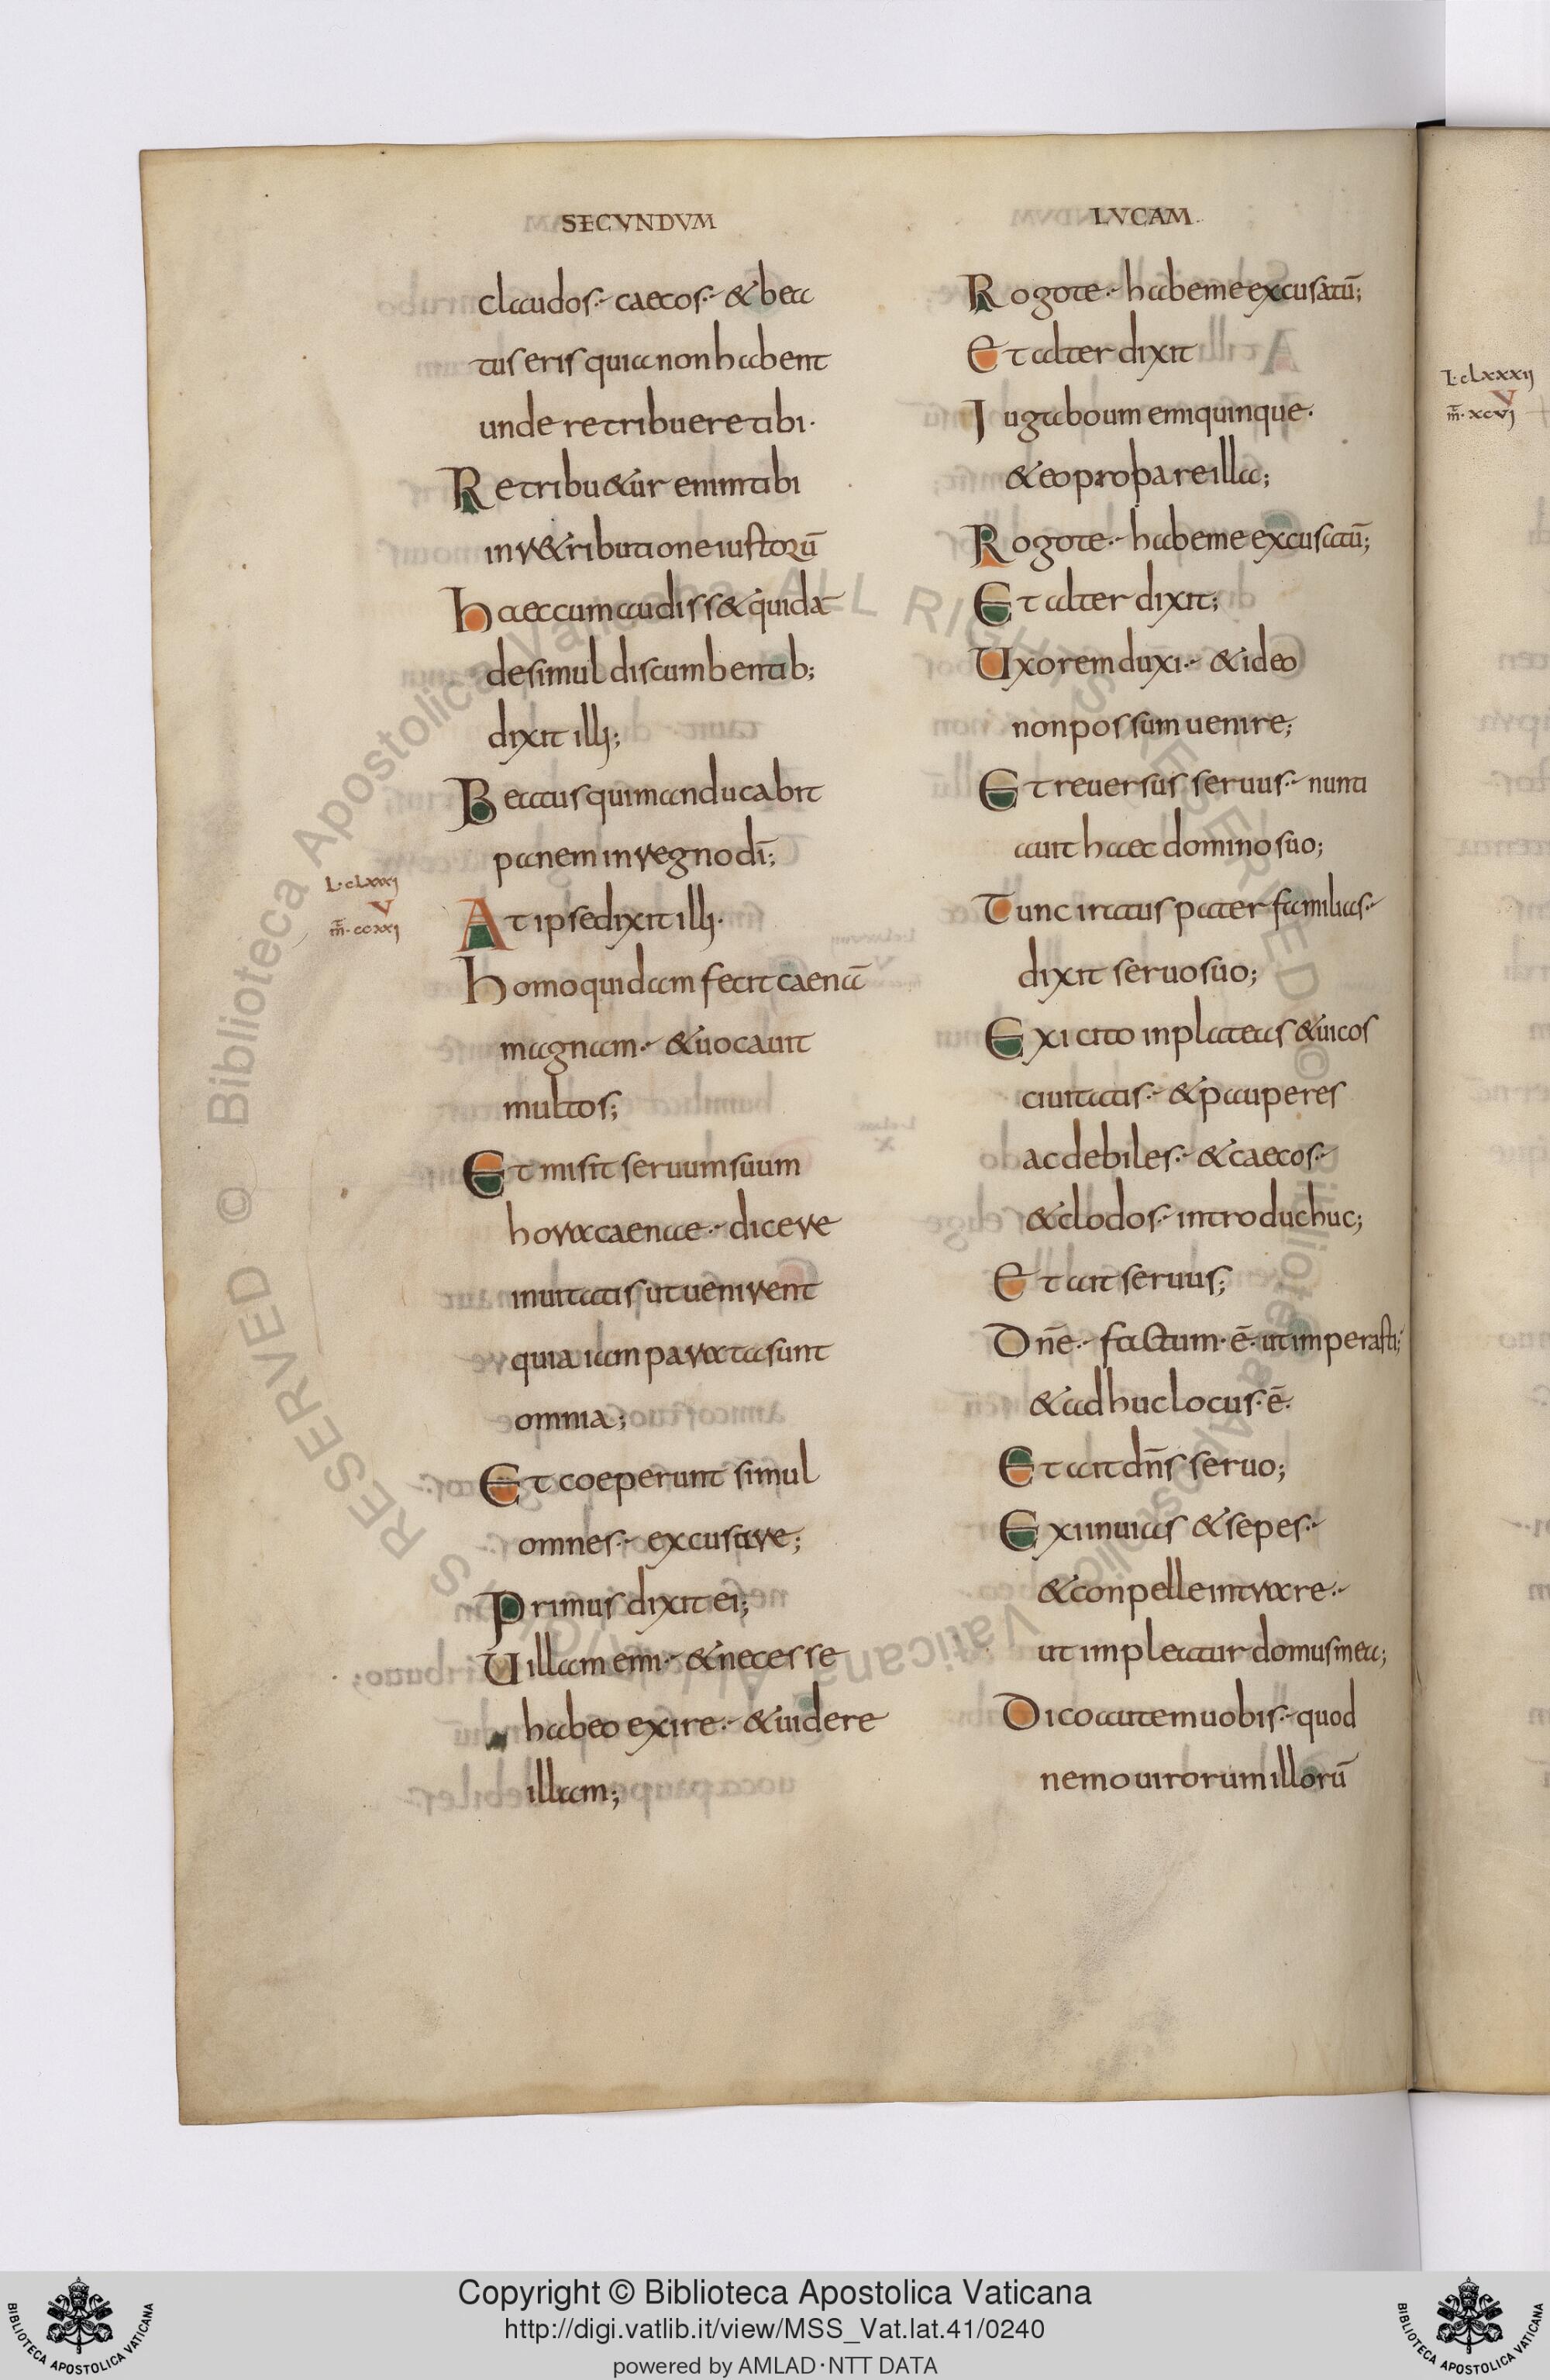 SECVNDVM
claudos. caecos. & bea
tus eris quia non habent
unde retribuere tibi.
Retribu&ur enim tibi
in r&ributione iustorū
haec cum audiss& quidā
de simul discumbentib;
dixit illi;
Beatus qui manducabit
panem in regno dī;
L. cLxxxj
V
m̄. ccxxj
At ipse dixit illi.
homo quidam fecit caenā
magnam. & uocauit
multos;
Et misit seruum suum
hora caenae. dicere
inuitatis ut uenirent
quia iam parata sunt
omnia;
Et coeperunt simul
omnes. excusare;
Primus dixit ei;
Uillam emi. & necesse
habeo exire. & uidere
illam;
LVCAM
Rogo te. habe me excusatū;
Et alter dixit
Juga boum emi quinque.
& eo probare illa;
Rogo te. habe me excusatū;
Et alter dixit;
Uxorem duxi. & ideo
non possum uenire;
Et reuersus seruus. nunti
auit haec domino suo;
Tunc iratus pater familias.
dixit seruo suo;
Exi cito in plateas & uicos
ciuitatis. & pauperes
ac debiles. & caecos.
& clodos. introduc huc;
Et ait seruus;
Dn̄e. factum. ē. ut imperasti;
& adhuc locus. ē.
Et ait dn̄s seruo;
Exi in uias & sepes.
& conpelle intrare.
ut impleatur domus mea;
Dico autem uobis. quod
nemo uirorum illorū
L. cLxxxij
V
m̄. xcvj
Copyright © Biblioteca Apostolica Vaticana
http://digi.vatlib.it/view/MSS_Vat.lat.41/0240
powered by AMLAD·NTT DATA
BIBLIOTECA APOSTOLICA VATICANA
BIBLIOTECA APOSTOLICA VATICANA
© Biblioteca Apostolica Vaticana ALL RIGHTS RESERVED © Biblioteca Apostolica Vaticana ALL RIGHTS RESERVED